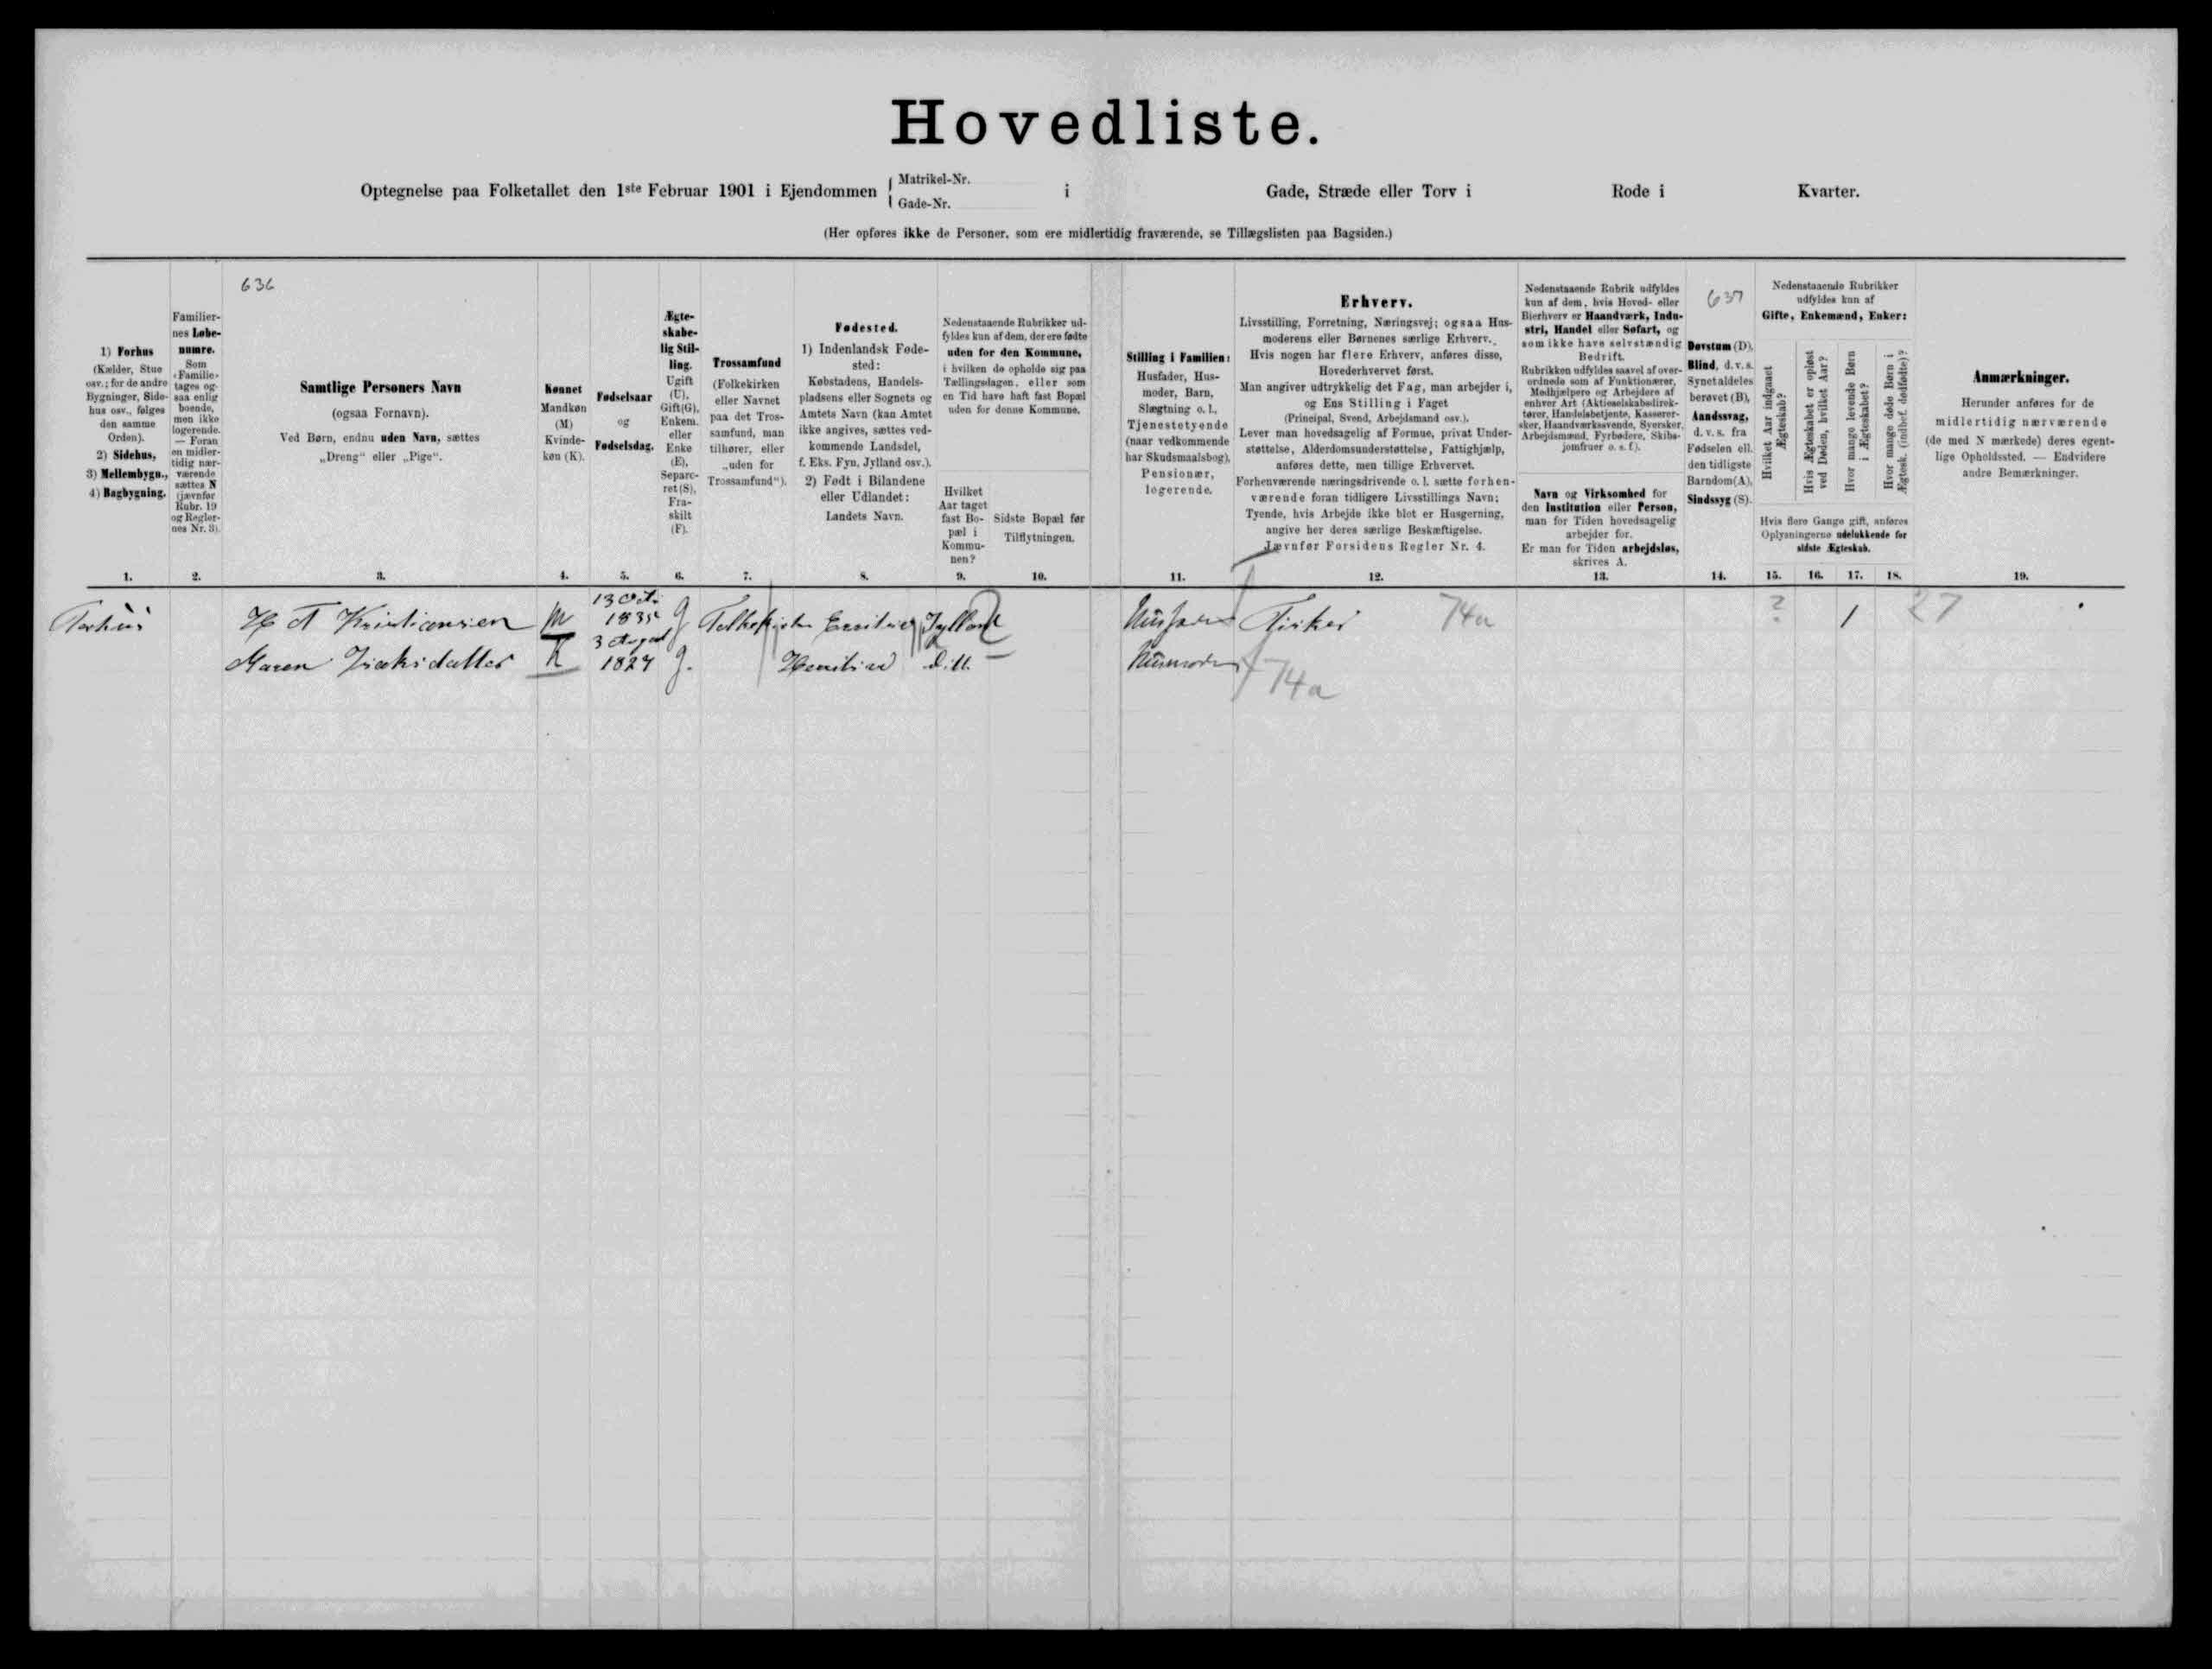 Hovedliste.
Optegnelse paa Folketallet den 1ste Februar 1901 i Ejendommen { Matrikel-Nr. Gade-Nr. i Gade, Stræde eller Torv i Rode i Kvarter.
(Her opføres ikke de Personer, som ere midlertidig fraværende, se Tillægslisten paa Bagsiden.)
1) Forhus
(Kælder, Stue
osv.; for de andre
Bygninger, Side-
hus osv., følges
den samme
Orden).
2) Sidehus,
3) Mellembygn.,
4) Bagbygning.
1.
Familier-
nes Løbe-
numre.
Som
«Familie»
tages og-
saa enlig
boende,
men ikke
logerende.
— Foran
en midler-
tidig nær-
værende
sættes N
(jævnfør
Rubr. 19
og Regler-
nes Nr. 3).
2.
636
Samtlige Personers Navn
(ogsaa Fornavn).
Ved Børn, endnu uden Navn, sættes
„Dreng" eller „Pige".
3.
Kønnet
Mandkøn
(M)
Kvinde-
køn (K).
4.
Fødselsaar
og
Fødselsdag.
5.
Ægte-
skabe-
lig Stil-
ling.
Ugift
(U),
Gift(G),
Enkem.
eller
Enke
(E),
Separe-
ret(S),
Fra-
skilt
(F).
6.
Trossamfund
(Folkekirken
eller Navnet
paa det Tros-
samfund, man
tilhører, eller
„uden for
Trossamfund").
7.
Fødested.
1) IndenlandskFøde-
sted:
Købstadens, Handels-
pladsens eller Sognets og
Amtets Navn (kan Amtet
ikke angives, sættes ved-
kommende Landsdel,
f. Eks. Fyn, Jylland osv.).
2) Født i Bilandene
eller Udlandet:
Landets Navn.
8.
Nedenstaaende Rubrikker ud-
fyldes kun af dem, der ere fødte
uden for den Kommune,
i hvilken de opholde sig paa
Tællingsdagen, eller som
en Tid have haft fast Bopæl
uden for denne Kommune.
Hvilket
Aar taget
fast Bo-
pæl i
Kommu-
nen?
9.
Sidste Bopæl før
Tilflytningen.
10.
Stilling i Familien:
Husfader, Hus-
moder, Barn,
Slægtning o. l.,
Tjenestetyende
(naar vedkommende
har Skudsmaalsbog),
Pensionær,
logerende.
11.
Erhverv.
Livsstilling, Forretning, Næringsvej; ogsaa Hus-
moderens eller Børnenes særlige Erhverv.
Hvis nogen har flere Erhverv, anføres disse,
Hovederhvervet først.
Man angiver udtrykkelig det Fag, man arbejder i,
og Ens Stilling i Faget
(Principal, Svend, Arbejdsmand osv.).
Lever man hovedsagelig af Formue, privat Under-
støttelse, Alderdomsunderstøttelse, Fattighjælp,
anføres dette, men tillige Erhvervet.
Forhenværende næringsdrivende o. l. sætte forhen-
værende foran tidligere Livsstillings Navn;
Tyende, hvis Arbejde ikke blot er Husgerning,
angive her deres særlige Beskæftigelse.
Jævnfør Forsidens Regler Nr. 4.
12.
Nedenstaaende Rubrik udfyldes
kun af dem, hvis Hoved- eller
Bierhverv er Haandværk, Indu-
stri, Handel eller Søfart, og
som ikke have selvstændig
Bedrift.
Rubrikken udfyldes saavel af over-
ordnede som af Funktionærer,
Medhjælpere og Arbejdere af
enhver Art (Aktieselskabsdirek-
tører, Handelsbetjente, Kasserer-
sker, Haandværkssvende, Syersker,
Arbejdsmænd, Fyrbødere, Skibs-
jomfruer o. s. f.).
Navn og Virksomhed for
den Institution eller Person,
man for Tiden hovedsagelig
arbejder for.
Er man for Tiden arbejdsløs,
skrives A.
13.
637
Døvstum (D),
Blind, d. v. s.
Synet aldeles
berøvet (B),
Aandssvag,
d. v. s. fra
Fødselen ell.
den tidligste
Barndom(A),
Sindssyg (S).
14.
Nedenstaaende Rubrikker
udfyldes kun af
Gifte, Enkemænd, Enker:
Hvilket Aar indgaaet
Ægteskab?
Hvis Ægteskabet er opløst
ved Døden, hvilket Aar?
Hvor mange levende Børn
i Ægteskabet?
Hvor mange døde Børn i
Ægtesk. (indbef. dødfødte)?
Hvis flere Gange gift, anføres
Oplysningerne udelukkende for
sidste Ægteskab.
15. 16. 17. 18.
Anmærkninger.
Herunder anføres for de
midlertidig nærværende
(de med N mærkede) deres egent-
lige Opholdssted. — Endvidere
andre Bemærkninger.
19.
Forhus H A Kristiansen M 13 Oct. 1835 g Jylland Husfader Fisker 74a ? 1 27
Maren Isaksdatter K 3 1827 g. Ditt. Husmoder 74a